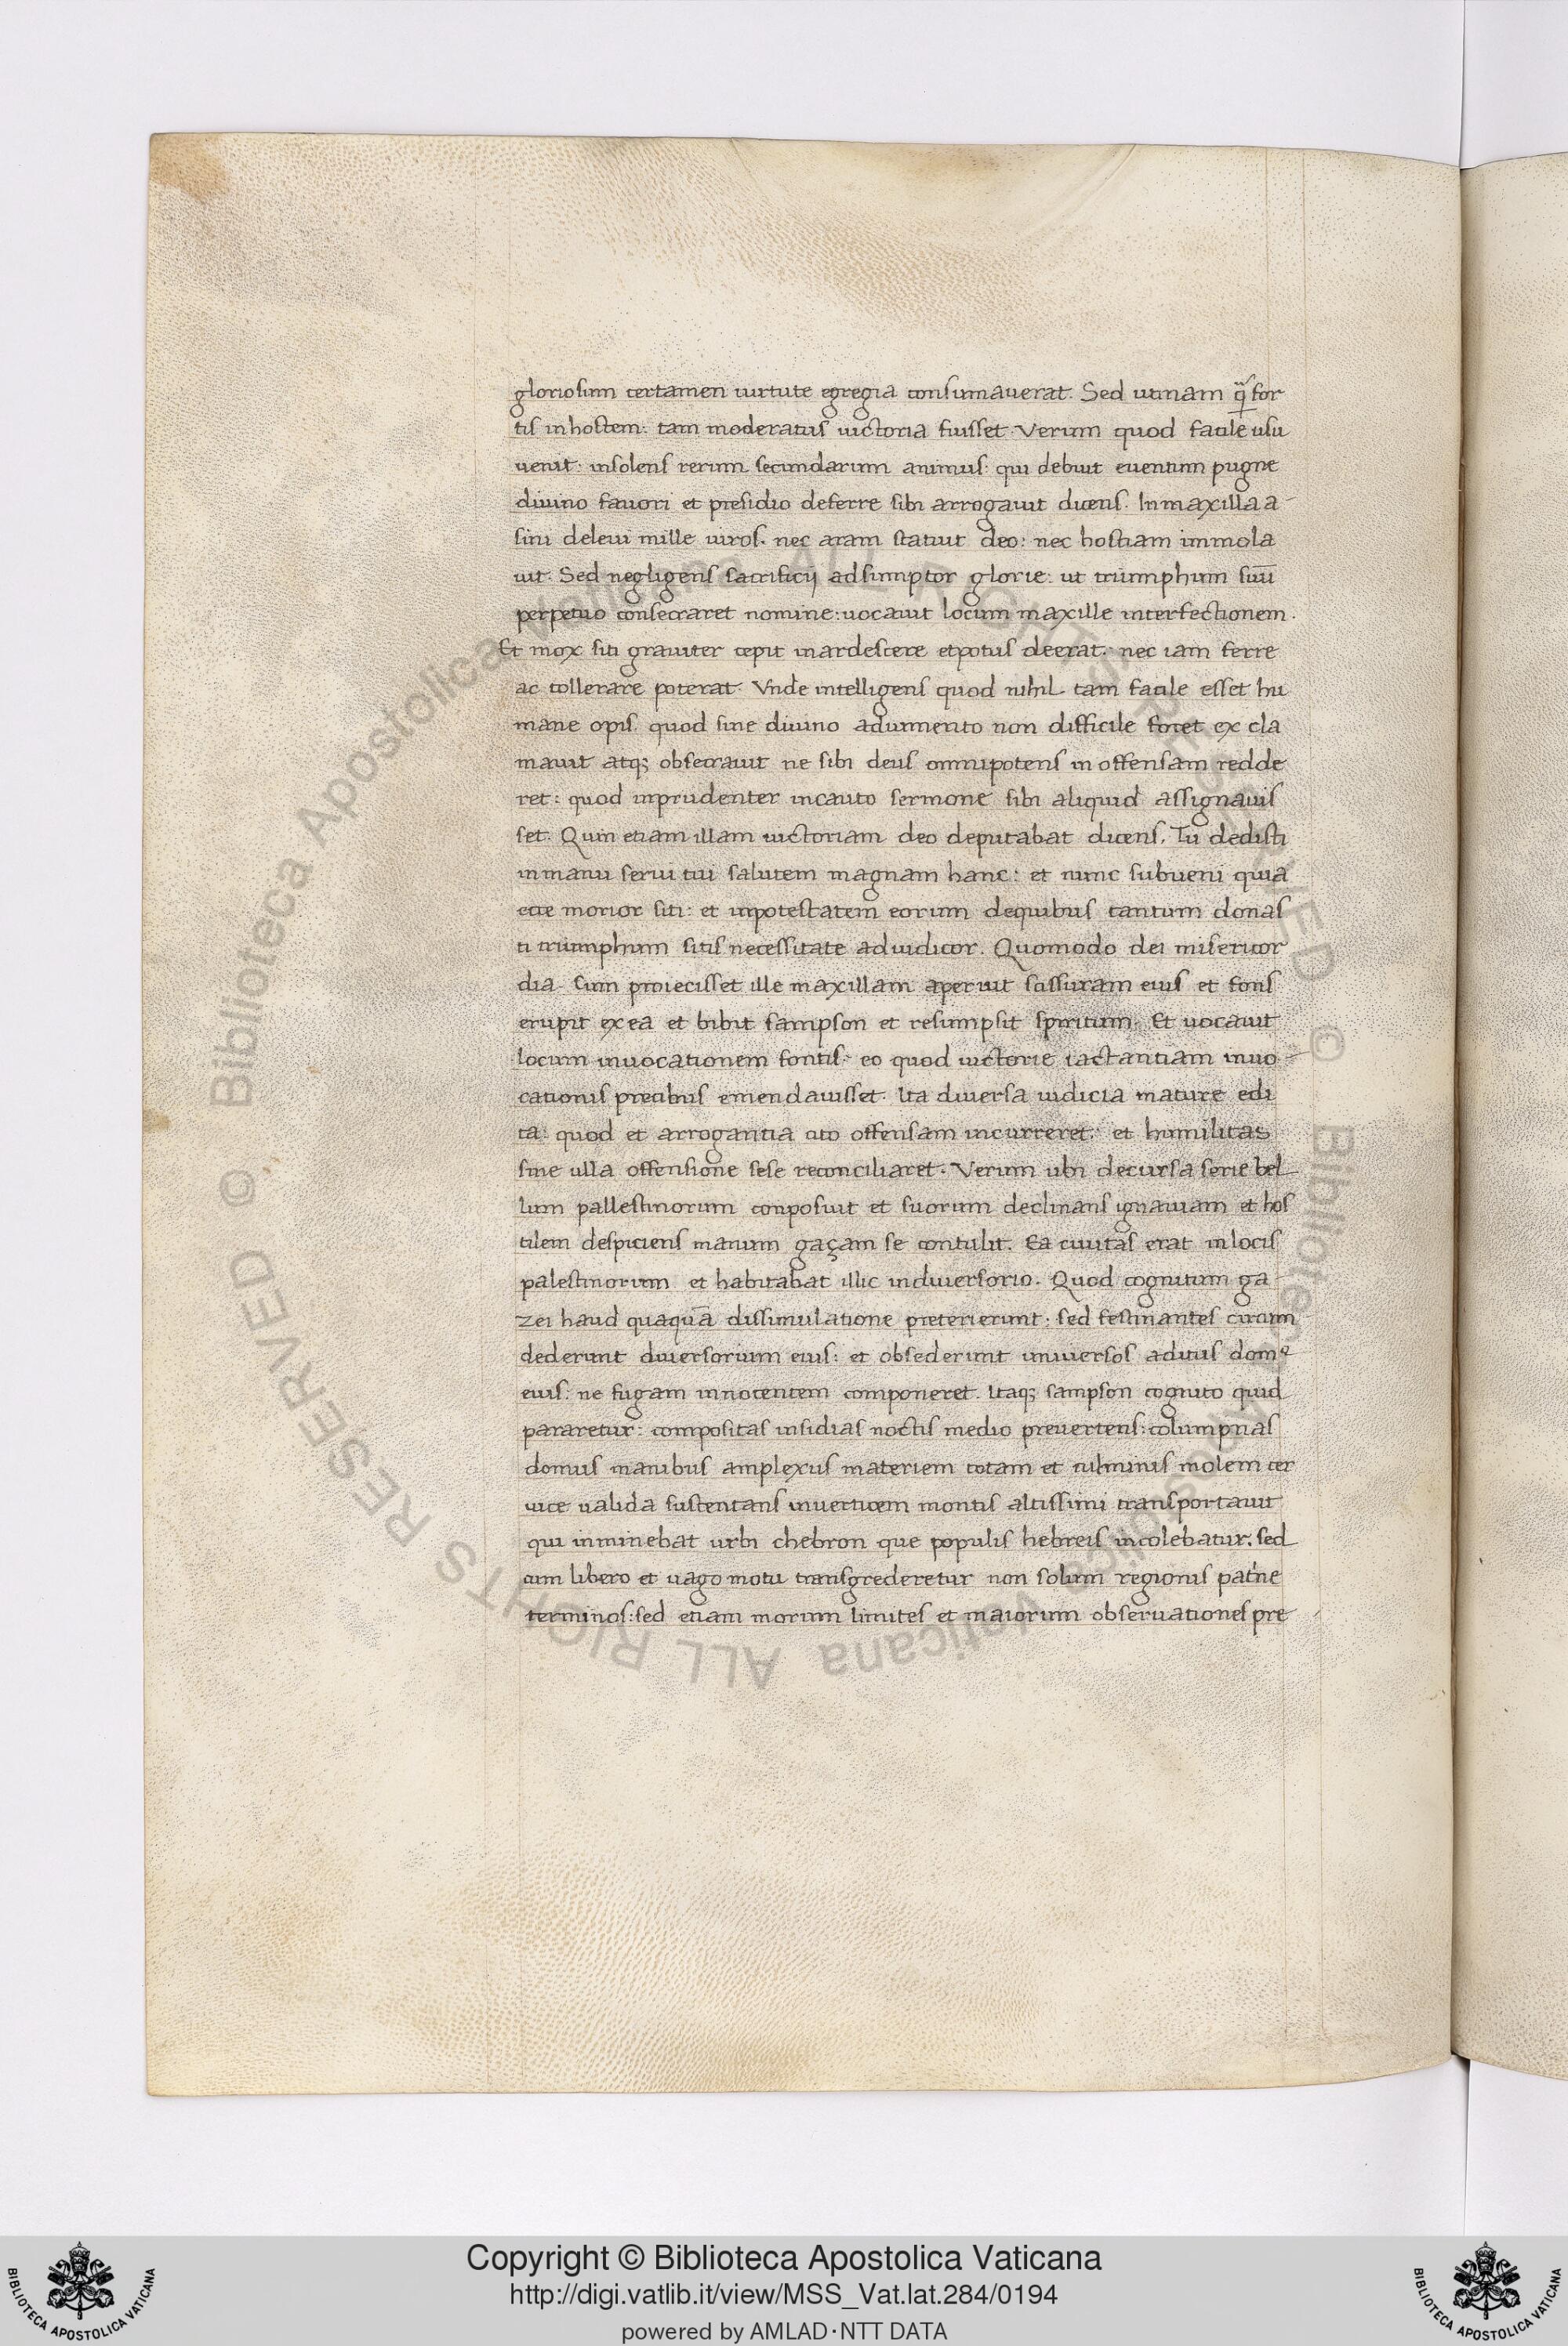 gloriosum certamen uirtute egregia consumauerat. Sed utinam q̃ for
tis inhostem: tam moderatus uictoria fuisset. Verum quod facile usu
uenit: insolens rerum secundarum animus: qui debuit euentum pugne
diuino fauori et presidio deferre sibi arrogauit dicens. Inmaxilla a-
sini deleui mille uiros. nec aram statuit deo: nec hostiam immola
uit. Sed negligens sacrificij adsumptor glorie: ut triumphum suū
perpetuo consecraret nomine: uocauit locum maxille interfectionem.
Et mox siti grauiter cepit inardescere etpotus deerat. nec iam ferre
ac tollerare poterat. Vnde intelligens quod nihil tam facile esset hu
mane opis. quod sine diuino adiumento non difficile foret ex cla
mauit atq; obsecrauit ne sibi deus omnipotens in offensam redde
ret: quod inprudenter incauto sermone sibi aliquid assignauis
set. Quin etiam illam uictoriam deo deputabat dicens. Tu dedisti
inmanu serui tui salutem magnam hanc: et nunc subueni quia
ecce morior siti: et inpotestatem eorum dequibus tantum donas
ti triumphum sitis necessitate adiudicor. Quomodo dei misericor
dia. Cum proiecisset ille maxillam aperuit scissuram eius et fons
erupit exea et bibit sampson et resumpsit spiritum. Et uocauit
locum inuocationem fontis. eo quod uictorie iactantiam inuo-
cationis precibus emendauisset. Ita diuersa iudicia mature edi
ta: quod et arrogantia cito offensam incurreret. et humilitas
sine ulla offensione sese reconciliaret. Verum ubi decursa serie bel
lum pallestinorum conposuit et suorum declinans ignauiam et hos
tilem despiciens manum gaçam se contulit. Ea ciuitas erat inlocis
palestinorum et habitabat illic indiuersorio. Quod cognitum ga-
zei haud quaquā dissimulatione preterierunt: sed festinantes circum
dederunt diuersorium eius: et obsederunt uniuersos aditus domꝰ
eius: ne fugam innocentem componeret. Itaq; sampson cognito quid
pararetur: compositas insidias noctis medio preuertens: columpnas
domus manibus amplexus materiem totam et culminis molem cer
uice ualida sustentans inuerticem montis altissimi transportauit
qui inminebat urbi chebron que populis hebreis incolebatur. sed
cum libero et uago motu transgrederetur non solum regionis pat'ne
terminos: sed etiam morum limites et maiorum obseruationes pre
Copyright © Biblioteca Apostolica Vaticana
http://digi.vatlib.it/view/MSS_Vat.lat.284/0194
powered by AMLAD·NTT DATA
BIBLIOTECA APOSTOLICA VATICANA
BIBLIOTECA APOSTOLICA VATICANA